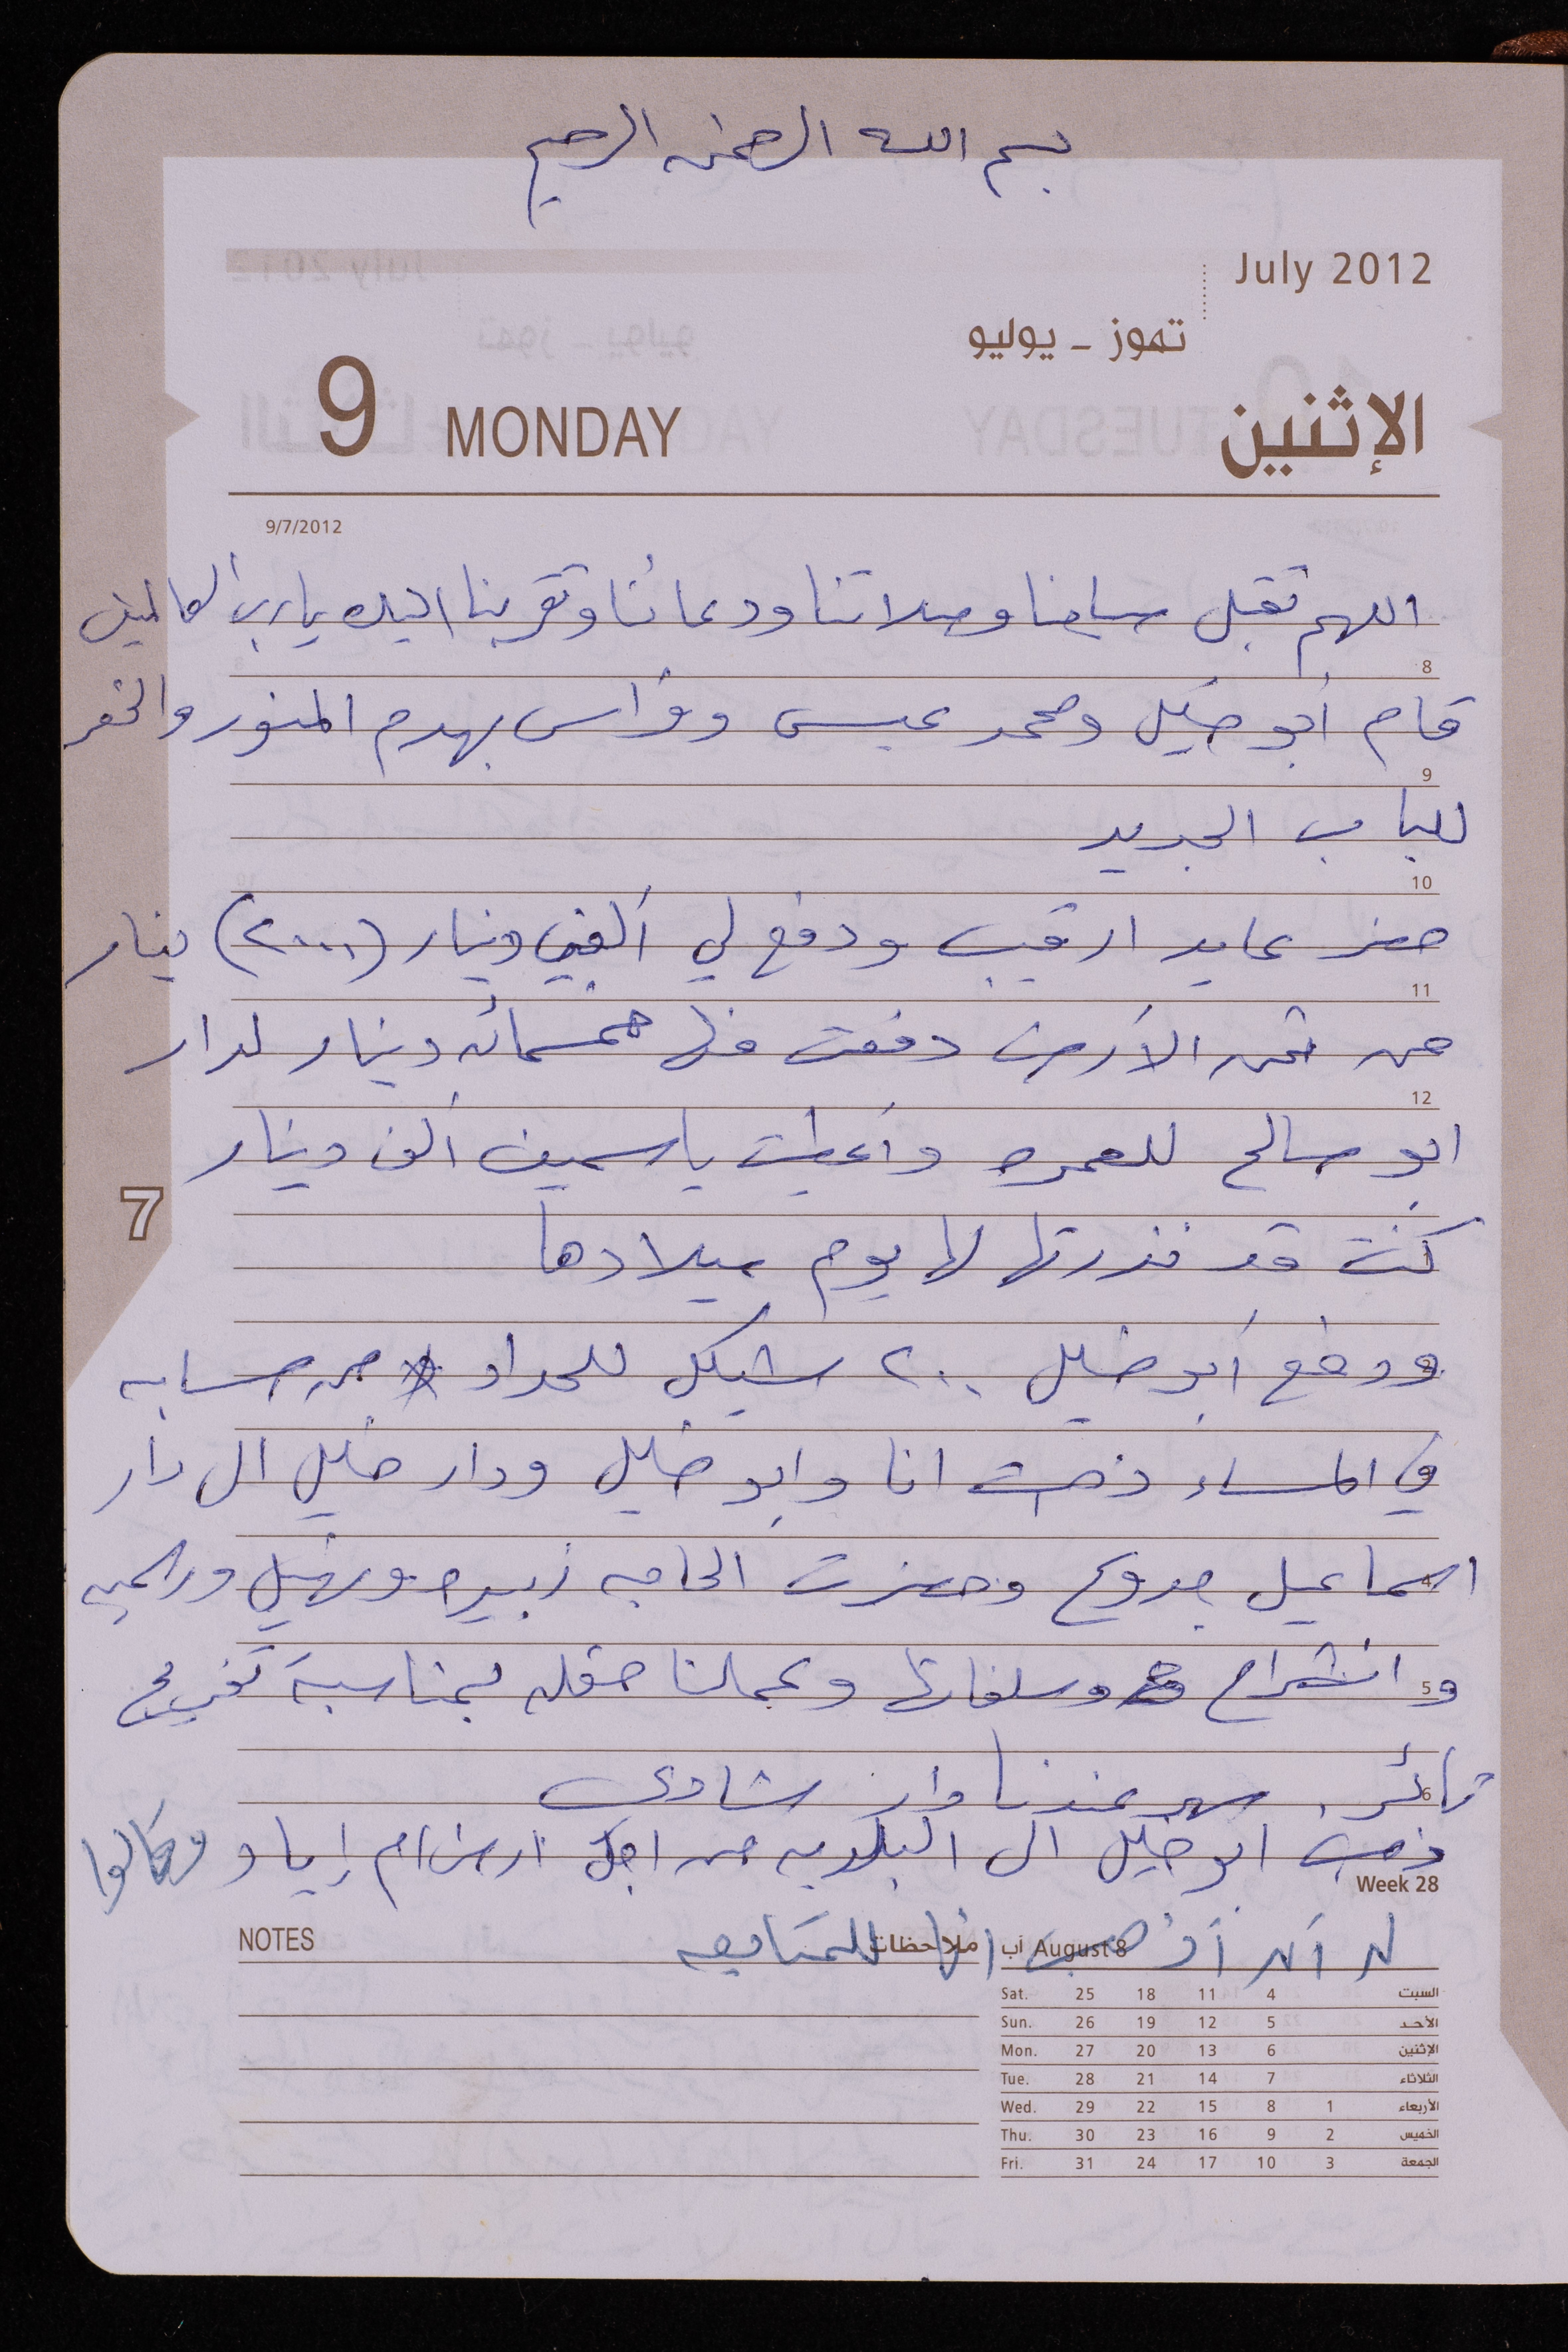 بسم الله الرحمن الرحيم
July 2012
تموز - يوليو
9 MONDAY الإثنين
9/7/2012
اللهم تقبل صيامنا وصلاتنا ودعائنا وتقربنا اليك يا رب العالمين
8
قام أبو خليل ومحمد عيسى وفراس بهدم السور والحفر
9
للباب الجديد
10
حضر عايد ارقيب ودفع لي ألفي دينار (٢٠٠٠) دينار
11
من ثمن الأرض دفعت منها خمسمائه دينار لدار
12
ابو صالح للعمره وأعطيت ياسمين ألف دينار
7
كنت قد نذرتها لها يوم ميلادها
ودفع أبو خليل ٢٠٠ شيكل للحداد من حسابه
في المساء ذهبت انا وابو خليل ودار خليل الى دار
4
اسماعيل جدوع وحضرت الحاجه زبيده ونهيل وراسميه
5
وانشراح وسلفاتها وعملنا حفله بمناسبة تخريج
6
ثائر. سهر عندنا دار شادي
ذهبت ابو خليل الى البلديه من اجل ارض ام إياد وقالوا
Week 28
له أن أذهب انا للمتابعه
NOTES ملاحظات
آب August 8
Sat. 25 18 11 4 السبت
Sun. 26 19 12 5 الأحد
Mon. 27 20 13 6 الإثنين
Tue. 28 21 14 7 الثلاثاء
Wed. 29 22 15 8 1 الأربعاء
Thu. 30 23 16 9 2 الخميس
Fri. 31 24 17 10 3 الجمعة